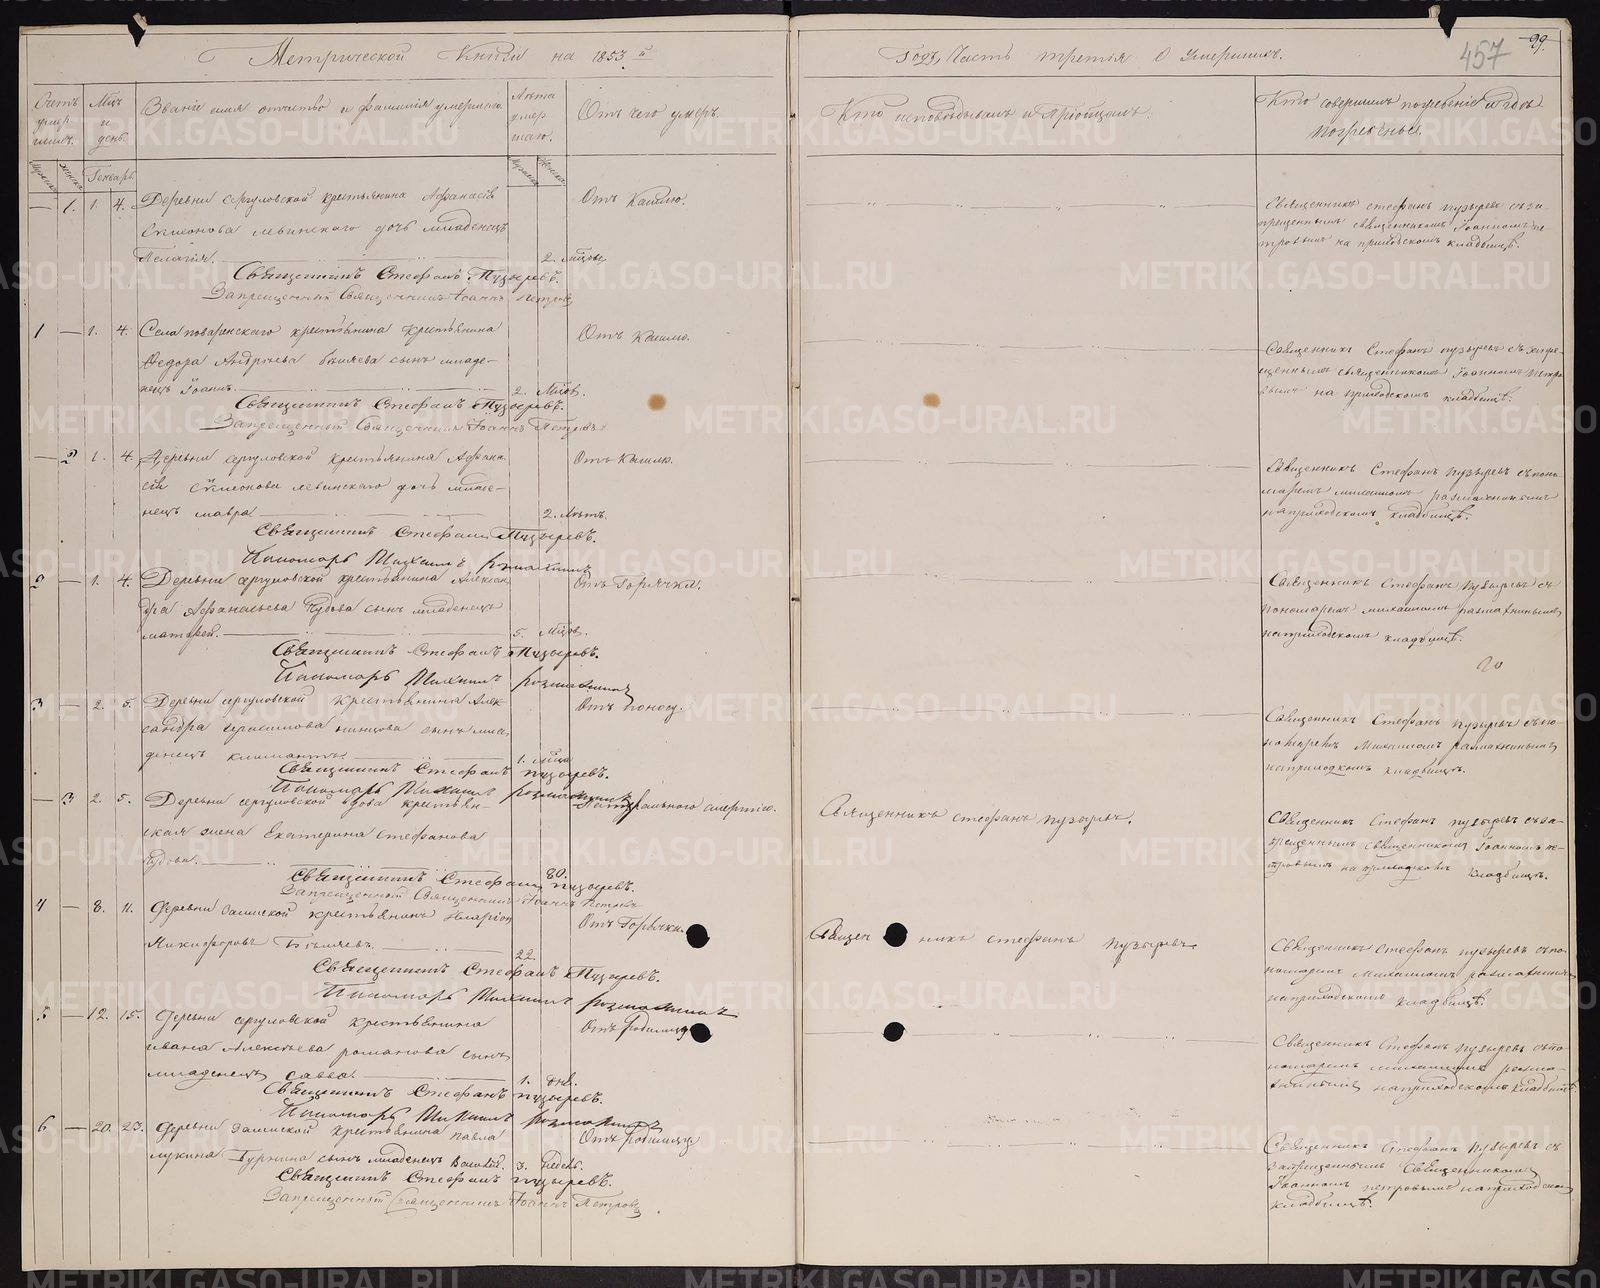 Метрической Книги на 1853й
Годъ, Часть третія о Умершихъ.
457
99.
Счетъ умершихъ.
Мц и день.
Званіе имя отчество и фамилія умершаго
Лѣта умершаго.
Отъ чего умеръ.
Кто исповѣдывалъ и Пріобщалъ.
Кто совершилъ погребеніе и гдѣ погребены.
Генварь.
1. 1. 4. Деревни крестьянина Афанасія
Симеонова левинскаго дочь младенецъ
Пелагія. 2. Мцовъ.
Отъ Кашлю.
Священникъ стефанъ пузыревъ съ за-
прещеннымъ священникомъ Іоанномъ пе-
тровымъ на приходскомъ кладбищѣ.
Священникъ Стефанъ Пузыревъ.
Запрещенный Священникъ Іоаннъ Петровъ
1 1. 4. Села крестьянина
Федора Андреева Бѣляева сынъ младе-
нецъ Іоаннъ. 2. Мцовъ.
Отъ Кашлю.
Священникъ Стефанъ пузыревъ съ запре-
щеннымъ священникомъ Іоанномъ Петро-
вымъ на приходскомъ кладбищѣ.
Священникъ Стефанъ Пузыревъ.
Запрещенный Священникъ Іоаннъ Петровъ
2 1. 4. Деревни крестьянина Афана-
сія Симеонова левинскаго дочь младе-
нецъ мавра 2. Лѣтъ.
Отъ Кашлю.
Священникъ Стефанъ пузыревъ съ поно-
маремъ михаиломъ размахнинымъ
на приходскомъ кладбищѣ.
Священникъ Стефанъ Пузыревъ.
Пономарь Михаилъ размахнинъ
2 1. 4. Деревни крестьянина Алексан-
дра Афанасьева Чудова сынъ младенецъ
матфей. 5. Мцовъ.
Отъ Горячки.
Священникъ Стефанъ Пузыревъ съ
пономаремъ михаиломъ размахнинымъ
на приходскомъ кладбищѣ.
Священникъ Стефанъ Пузыревъ.
Пономарь Михаилъ размахнинъ
3 2. 5. Деревни крестьянина Алек-
сандра сынъ мла-
денецъ климантъ. 1. мцъ
Отъ поносу.
Священникъ Стефанъ пузыревъ съ по-
номаремъ Михаиломъ размахнинымъ
на приходскомъ кладбищѣ.
Священникъ Стефанъ пузыревъ.
Пономарь Михаилъ размахнинъ
3 2. 5. Деревни вдова крестьян-
ская жена Екатерина стефанова
Чудова. 80.
Натурального смертію.
Священникъ стефанъ пузыревъ.
Священникъ Стефанъ пузыревъ съ за-
прещеннымъ священникомъ Іоанномъ пе-
тровымъ на приходскомъ кладбищѣ.
Священникъ Стефанъ пузыревъ.
Запрещенный Священникъ Іоаннъ Петровъ
4 8. 11. Деревни крестьянинъ Иларіонъ
Никифоровъ Бѣляевъ. 22.
Отъ Горячки.
Священникъ стефанъ пузыревъ
Священникъ Стефанъ пузыревъ съ по-
номаремъ Михаиломъ размахнинымъ
на приходскомъ кладбищѣ.
Священникъ Стефанъ Пузыревъ.
Пономарь Михаилъ размахнинъ
5 12. 15. Деревни крестьянина
ивана Алексѣева романова сынъ
младенецъ савва. 1. дня.
Отъ Родимца
Священникъ Стефанъ пузыревъ съ по-
номаремъ михаиломъ размах-
нинымъ на приходскомъ кладбищѣ
Священникъ Стефанъ пузыревъ.
Пономарь Михаилъ размахнинъ
6 20. 23. Деревни крестьянина павла
лукина сынъ младенецъ 3. Недѣль.
Отъ Родимца
Священникъ Стефанъ Пузыревъ съ
запрещеннымъ Священникомъ
Іоанномъ петровымъ на приходскомъ
кладбищѣ.
Священникъ Стефанъ пузыревъ.
Запрещенный Священникъ Іоаннъ Петровъ.
METRIKI.GASO-URAL.RU